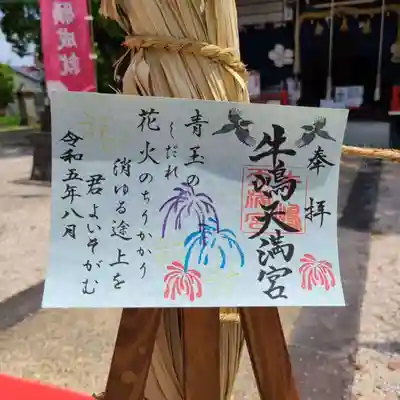 奉拝
牛嶋天満宮
青玉の
しだれ
花火のちりかかり
消ゆる途上を
君よいそがむ
令和五年八月
願成就